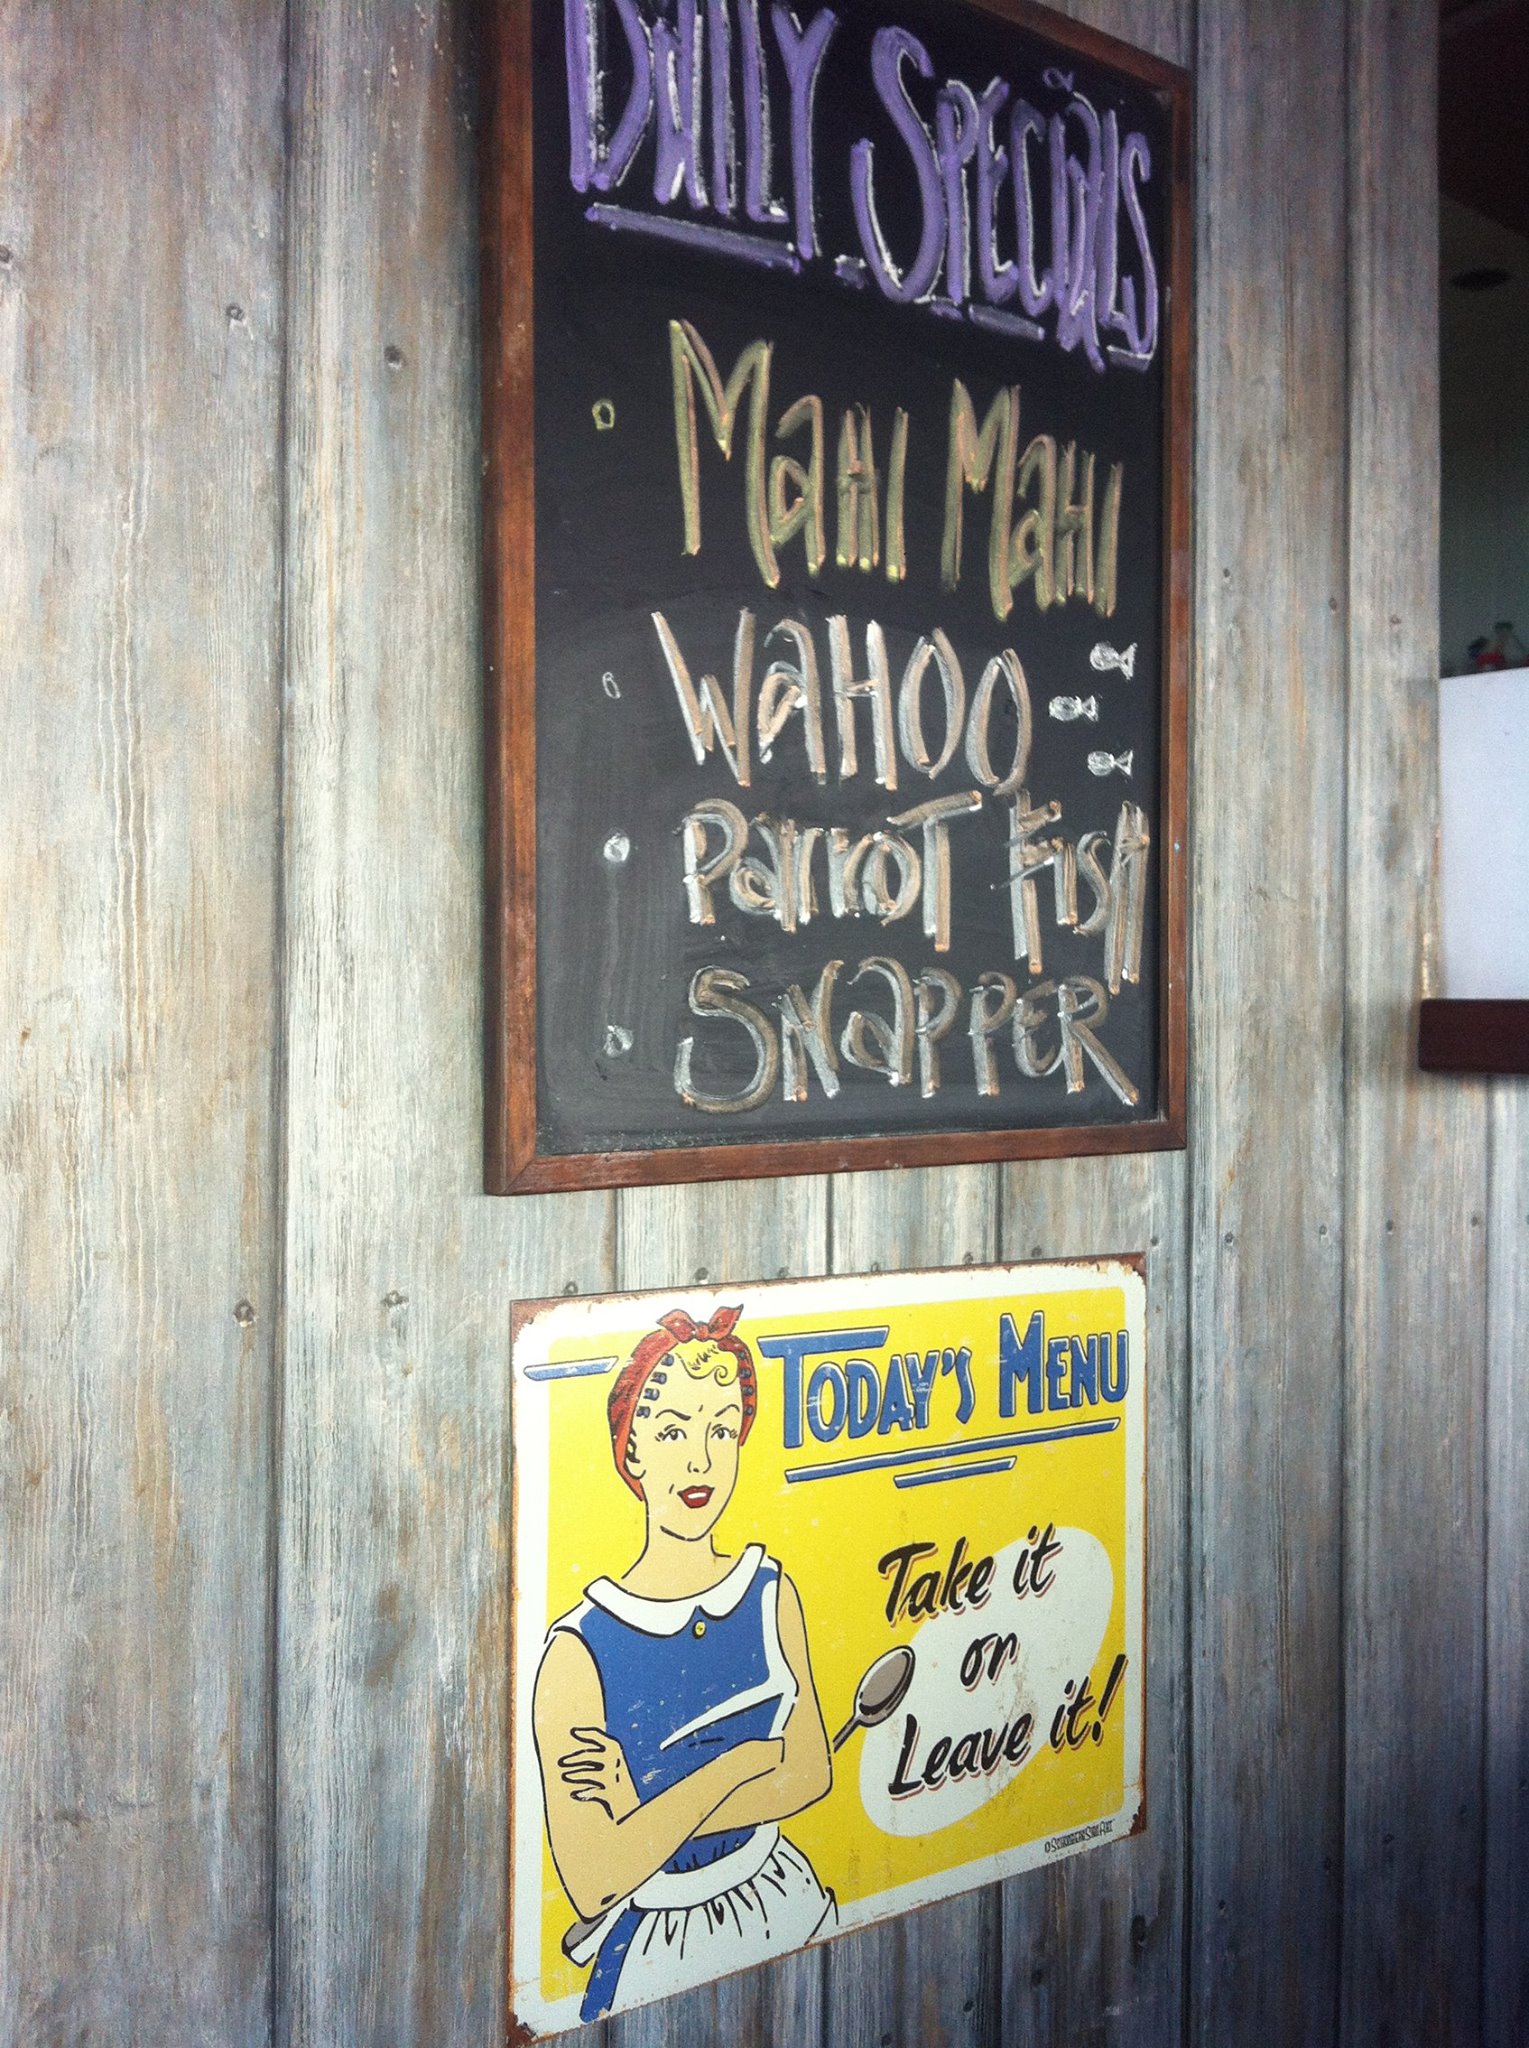 DAILY SPECIALS
MAHI MAHI
WAHOO
PARROT FISH
SNAPPER
TODAY'S MENU
Take it
or
Leave it!